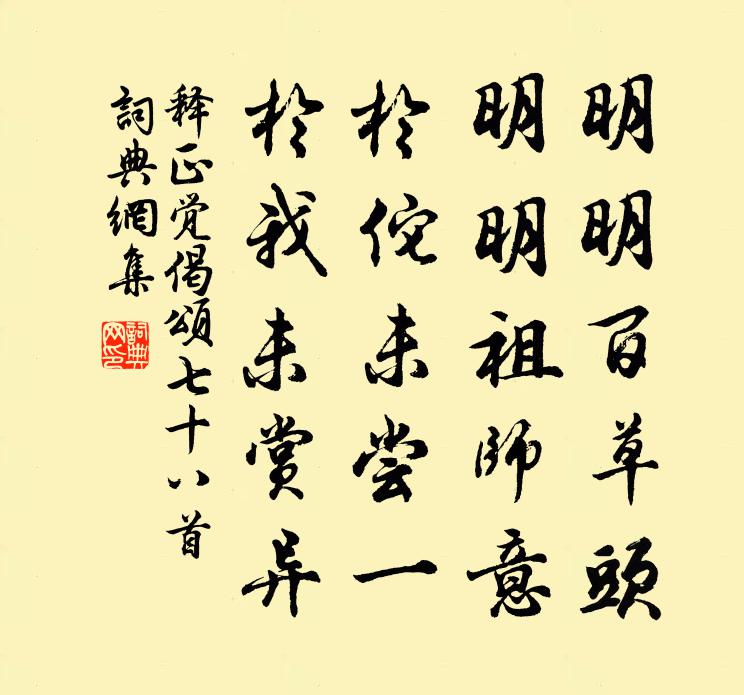 明明百草頭
明明祖師意
於佗未尝一
於我未賞异
释正觉偈頌七十八首
詞典網集
詞典网印